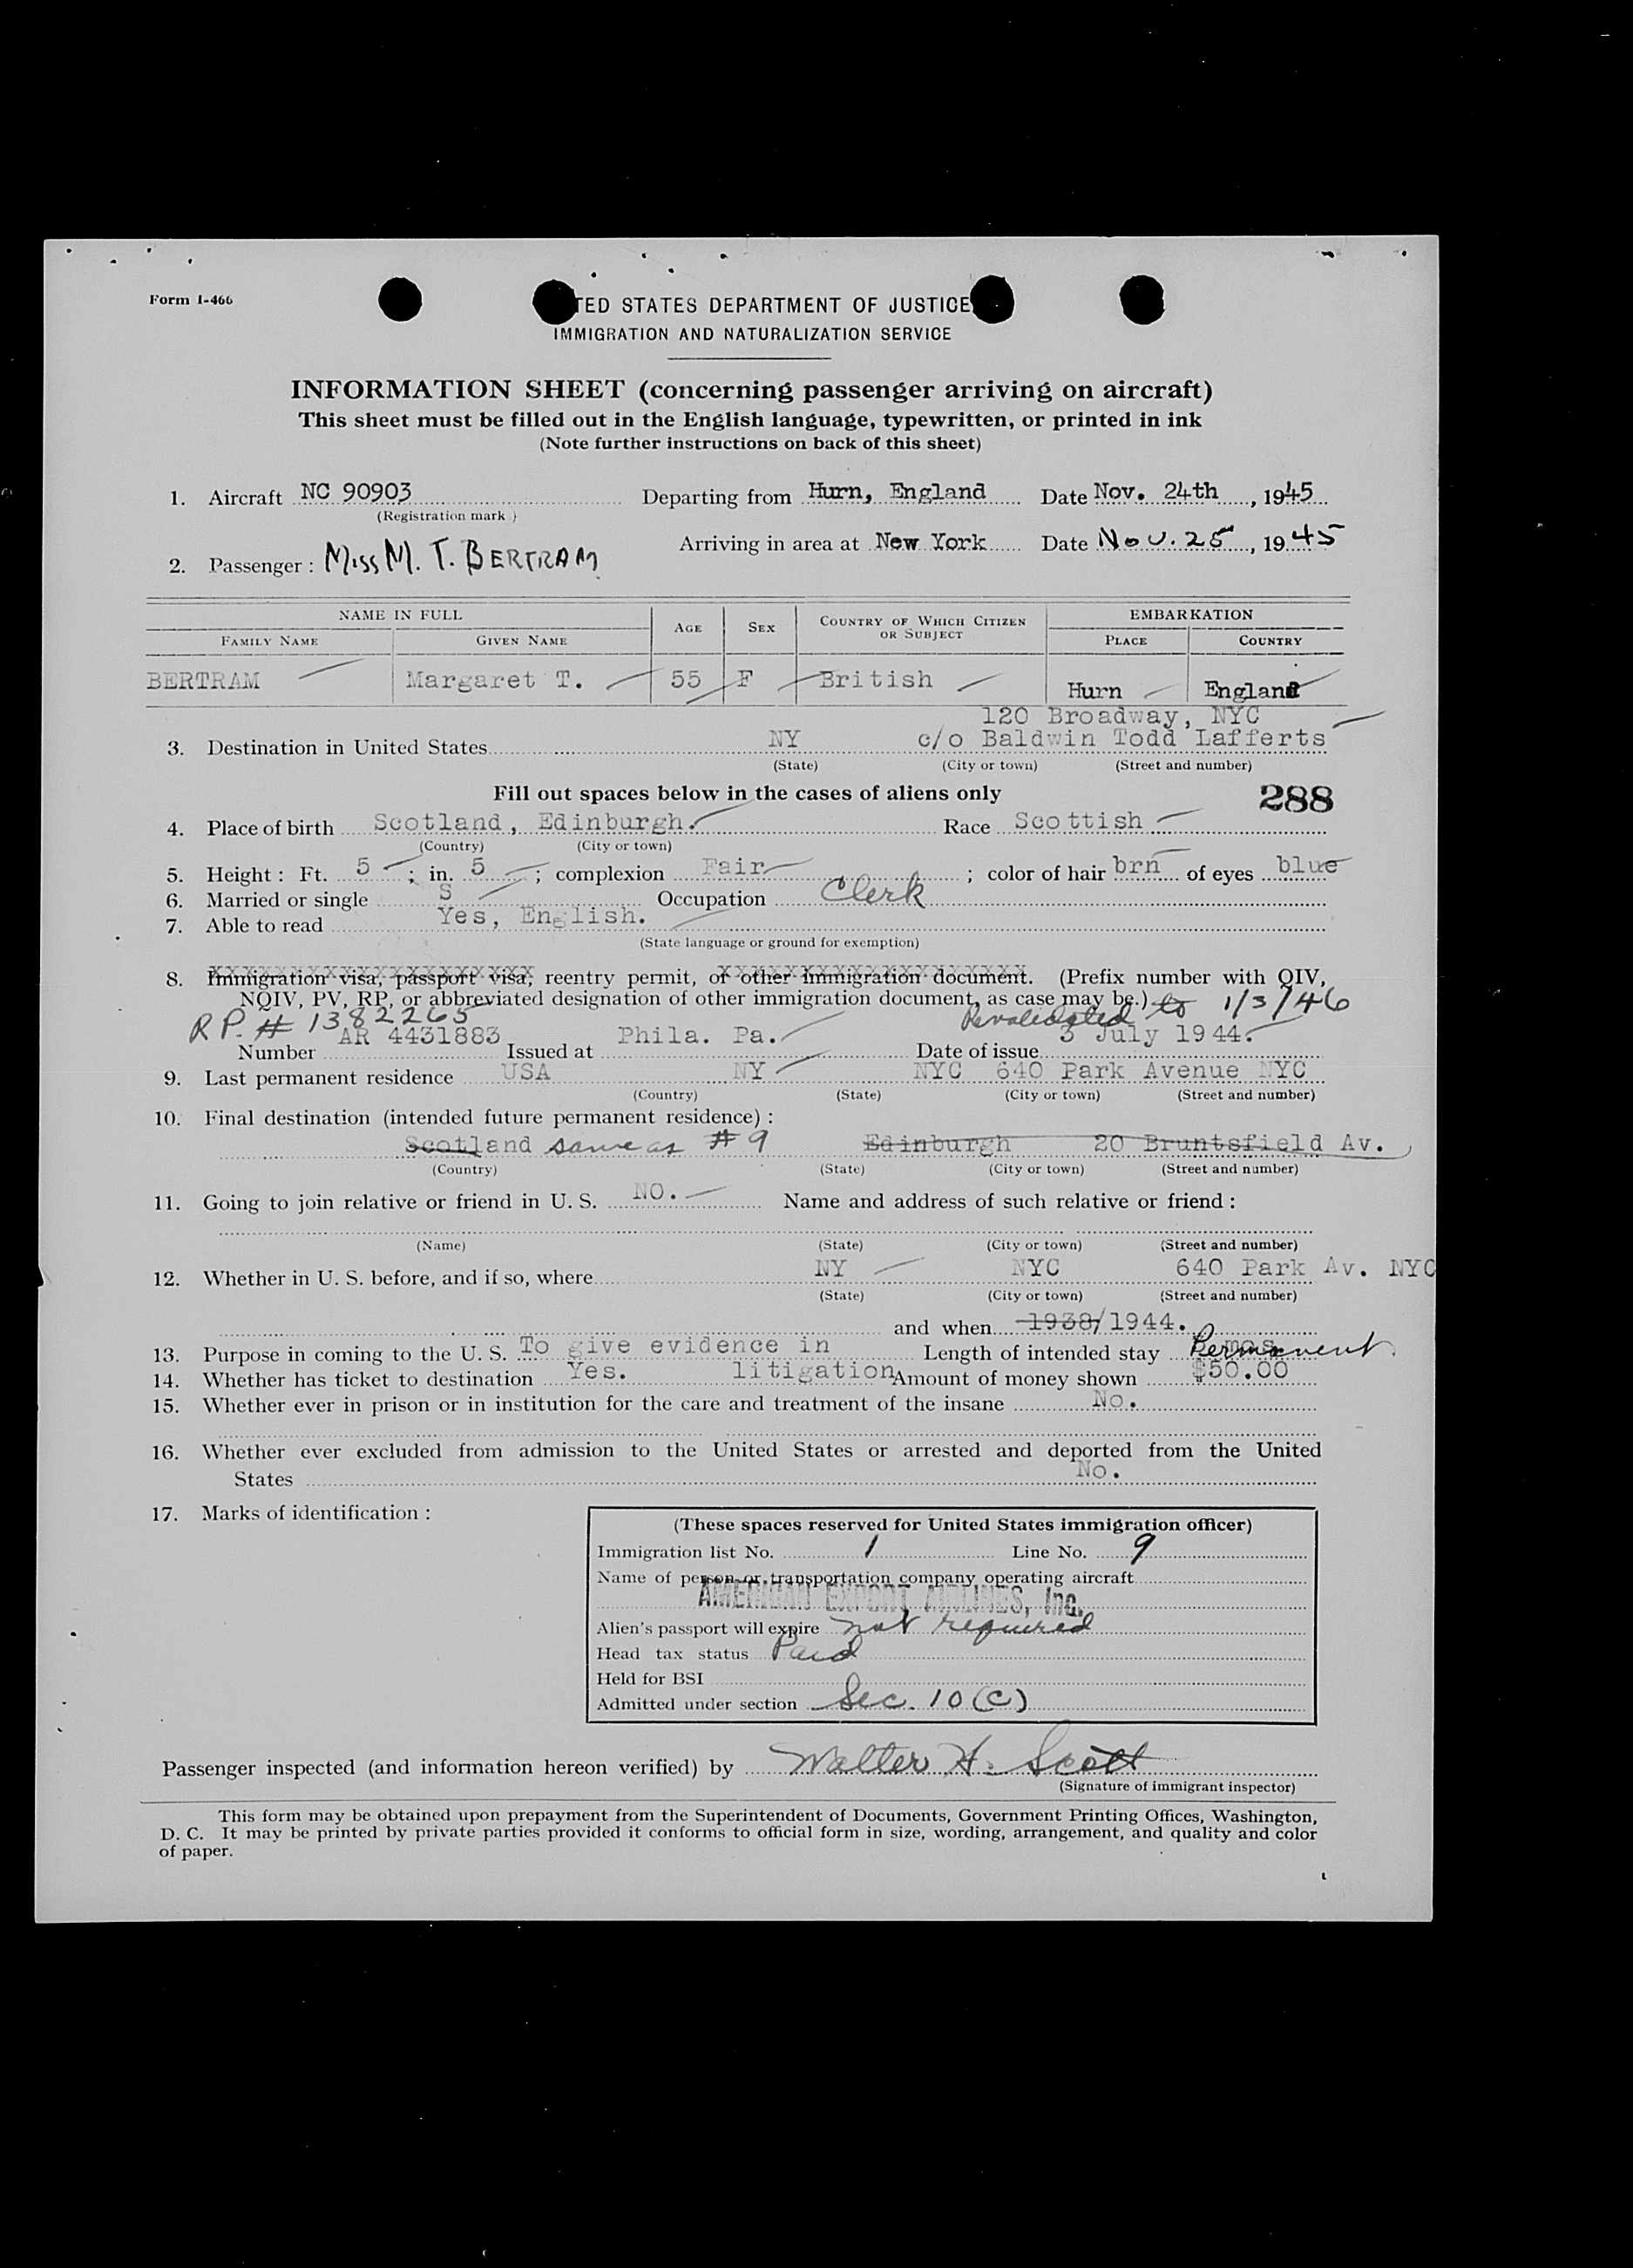 Form I-466
TED STATES DEPARTMENT OF JUSTICE
IMMIGRATION AND NATURALIZATION SERVICE
INFORMATION SHEET (concerning passenger arriving on aircraft)
This sheet must be filled out in the English language, typewritten, or printed in ink
(Note further instructions on back of this sheet)
1. Aircraft NC 90903 Departing from Hurn, England Date Nov. 24th, 1945
(Registration mark)
Arriving in area at New York Date Nov. 25, 1945
2. Passenger: Miss M. T. BERTRAM
NAME IN FULL AGE SEX COUNTRY OF WHICH CITIZEN OR SUBJECT EMBARKATION
FAMILY NAME GIVEN NAME PLACE COUNTRY
BERTRAM Margaret T. 55 F British Hurn England
120 Broadway, NYC
3. Destination in United States NY c/o Baldwin Todd Lafferts
(State) (City or town) (Street and number)
Fill out spaces below in the cases of aliens only 288
4. Place of birth Scotland, Edinburgh. Race Scottish
(Country) (City or town)
5. Height: Ft. 5; in. 5; complexion Fair; color of hair brn of eyes blue
6. Married or single S Occupation Clerk
7. Able to read Yes, English.
(State language or ground for exemption)
8. Immigration visa, passport visa, reentry permit, or other immigration document. (Prefix number with QIV,
NQIV, PV, RP, or abbreviated designation of other immigration document, as case may be.)
RP. # 1382265 Revalidated to 1/3/46
Number AR 4431883 Issued at Phila. Pa. Date of issue 3 July 1944.
9. Last permanent residence USA NY NYC 640 Park Avenue NYC
(Country) (State) (City or town) (Street and number)
10. Final destination (intended future permanent residence):
Scotland same as #9 Edinburgh 20 Bruntsfield Av.
(Country) (State) (City or town) (Street and number)
11. Going to join relative or friend in U. S. NO. Name and address of such relative or friend:
(Name) (State) (City or town) (Street and number)
12. Whether in U. S. before, and if so, where NY NYC 640 Park Av. NYC
(State) (City or town) (Street and number)
and when 1938/1944.
13. Purpose in coming to the U. S. To give evidence in Length of intended stay Permanent.
14. Whether has ticket to destination Yes. litigation Amount of money shown $50.00
15. Whether ever in prison or in institution for the care and treatment of the insane No.
16. Whether ever excluded from admission to the United States or arrested and deported from the United
States No.
17. Marks of identification:
(These spaces reserved for United States immigration officer)
Immigration list No. 1 Line No. 9
Name of person or transportation company operating aircraft
AMERICAN EXPORT AIRLINES, Inc.
Alien's passport will expire not required
Head tax status Paid
Held for BSI
Admitted under section Sec. 10 (C)
Passenger inspected (and information hereon verified) by Walter H. Scott
(Signature of immigrant inspector)
This form may be obtained upon prepayment from the Superintendent of Documents, Government Printing Offices, Washington,
D. C. It may be printed by private parties provided it conforms to official form in size, wording, arrangement, and quality and color
of paper.